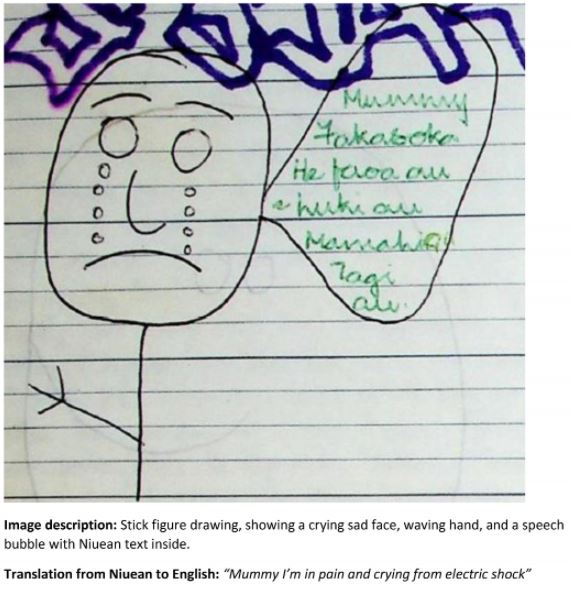 Mummy
He au
huki au
Mamahi au
Tagi
au.
Image description: Stick figure drawing, showing a crying sad face, waving hand, and a speech
bubble with Niuean text inside.
Translation from Niuean to English: “Mummy I’m in pain and crying from electric shock”